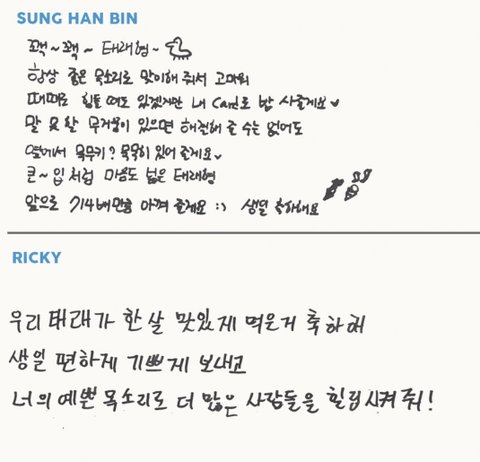 SUNG HAN BIN
꽥~꽥~ 태래형~
항상 좋은 목소리로 맞이해 줘서 고마워
때때로 힘들 때도 있겠지만 내 Card로 밥 사줄게요♥
말 못 할 무거움이 있으면 해결해 줄 수는 없어도
옆에서 묵묵히? 묵묵히 있어 줄게요♥
큰~입처럼 마음도 넓은 태래형
앞으로 714배만큼 아껴 줄게요 :) 생일 축하해요
RICKY
우리 태래가 한 살 맛있게 먹은거 축하해
생일 편하게 기쁘게 보내고
너의 예쁜 목소리로 더 많은 사람들을 힐링시켜 줘!